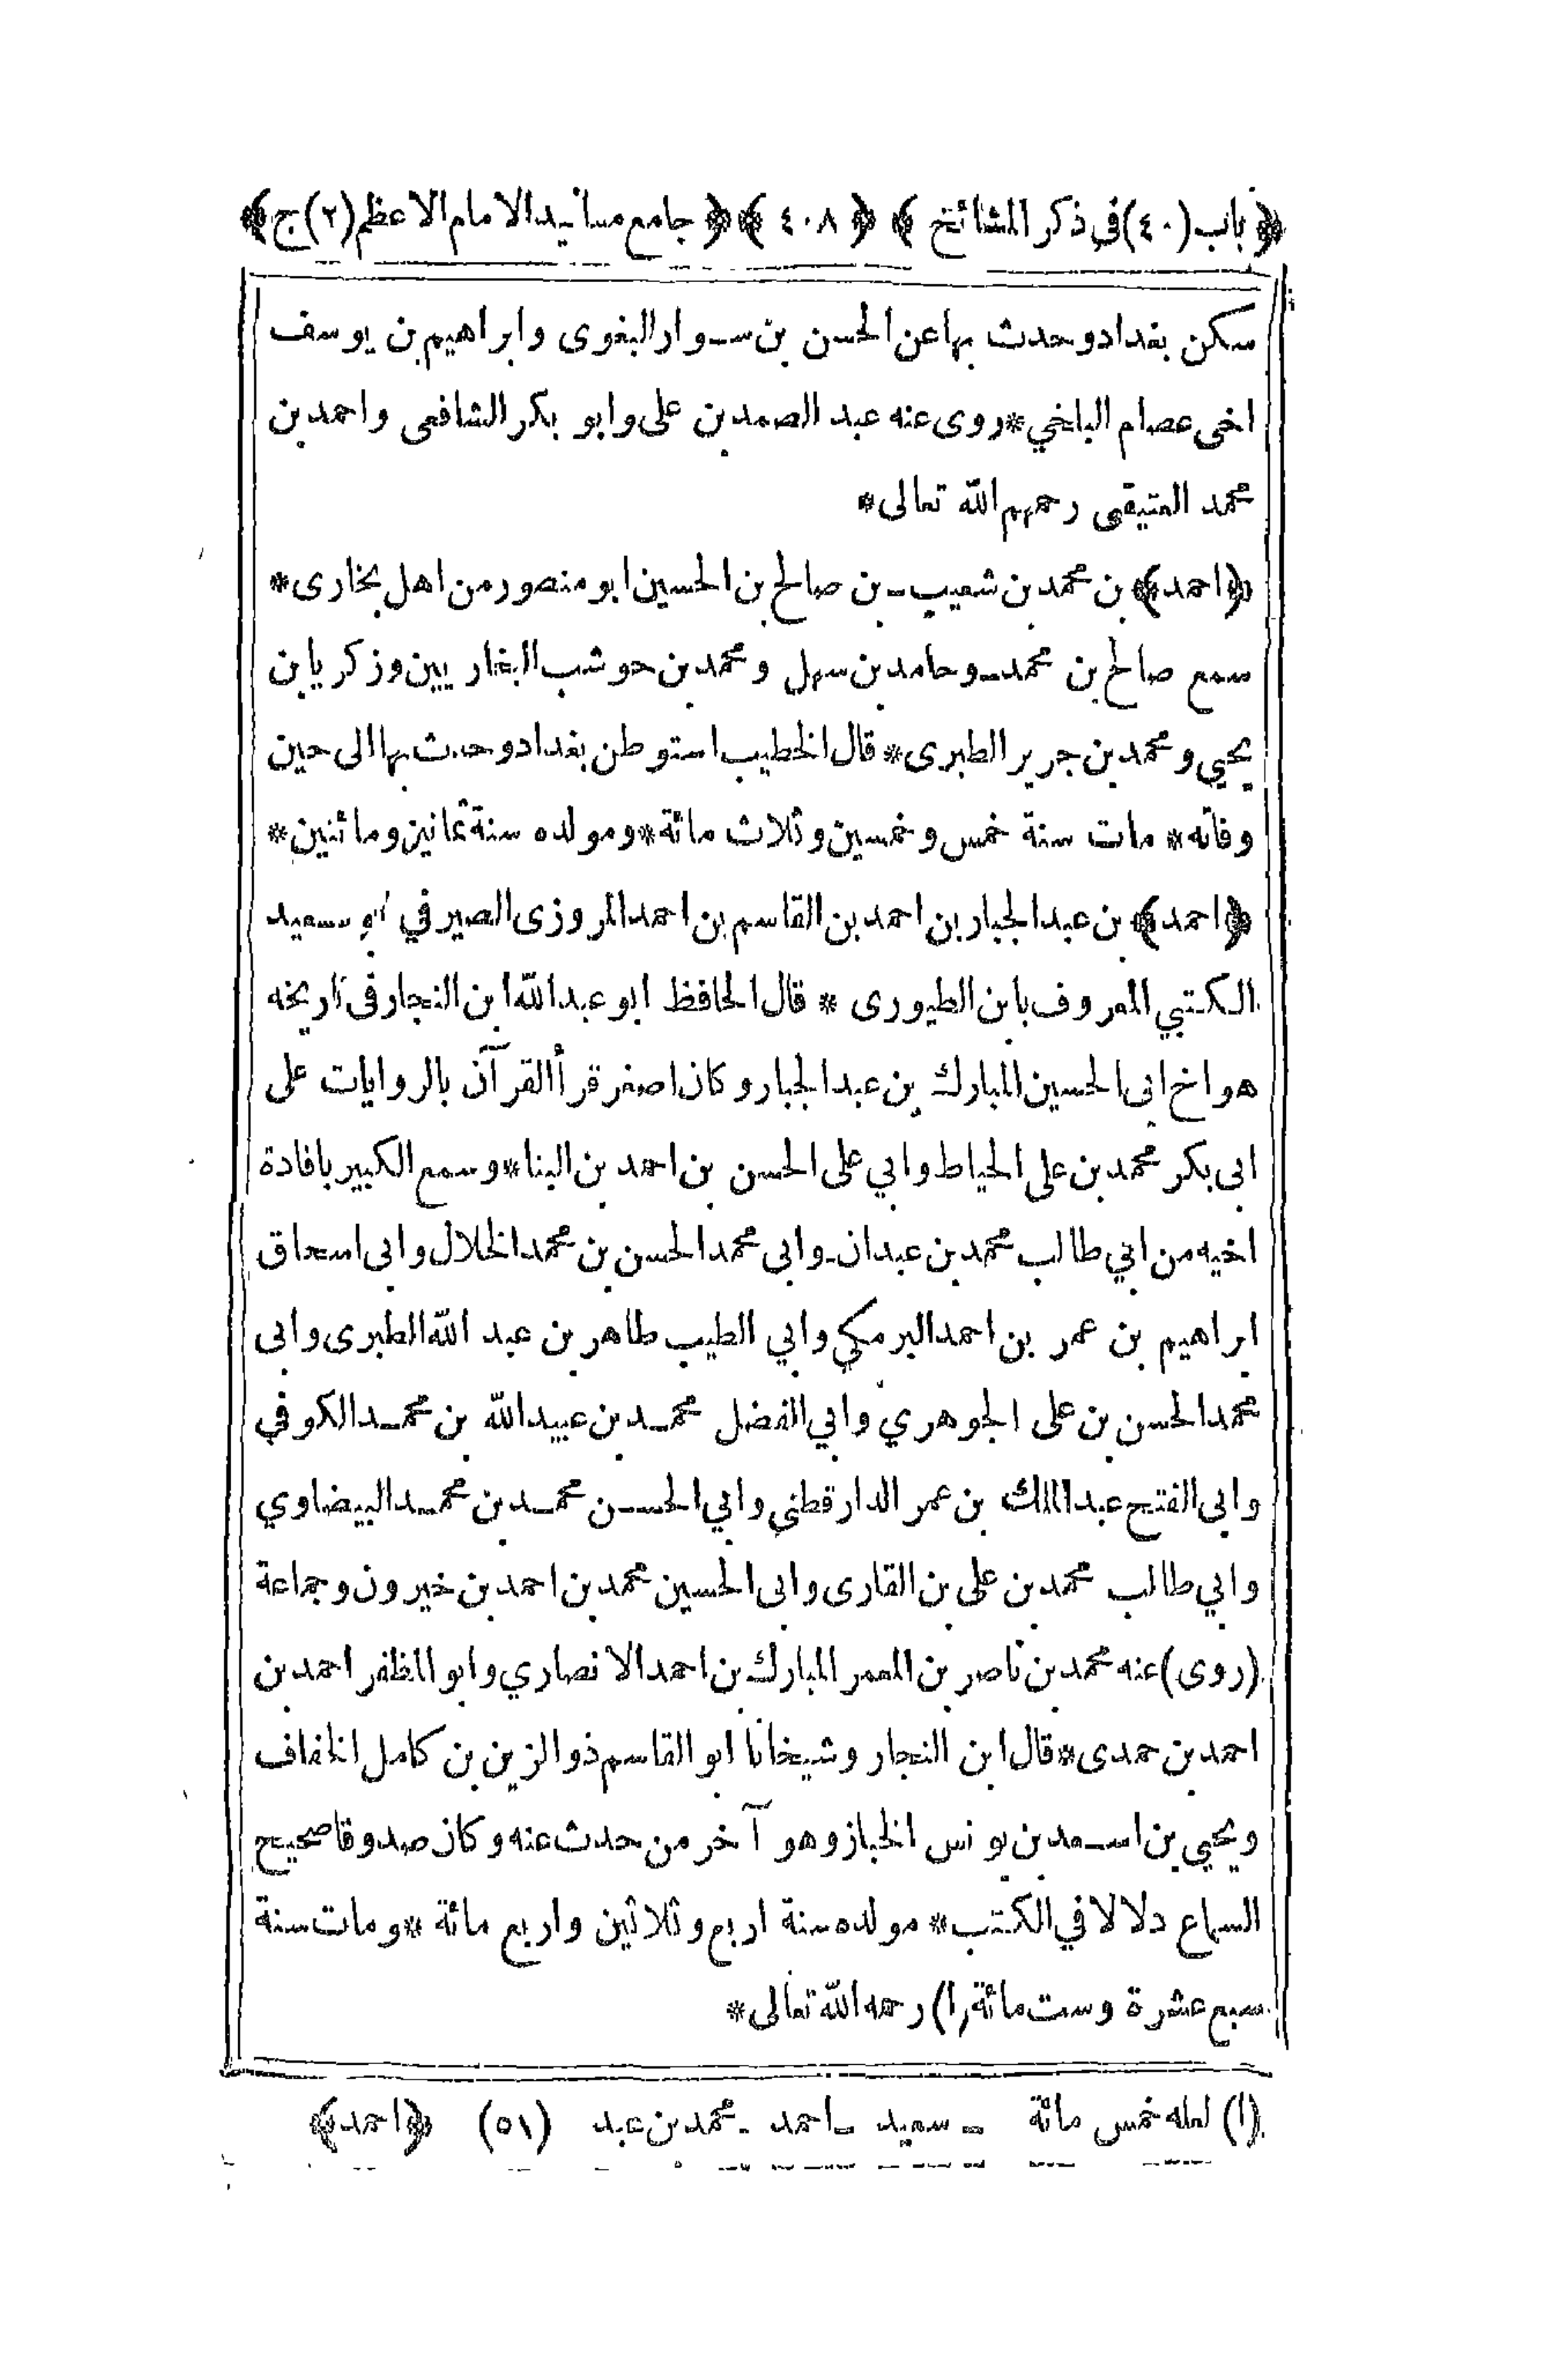 ﴿ باب (٤٠) في ذكر المشائخ ﴾ ﴿ ٤٠٨ ﴾ ﴿ جامع مسانيد الامام الاعظم (٢) ج ﴾
سكن بغداد وحدث بها عن الحسن بن سوار البغوى وابراهيم بن يوسف
اخى عصام البلخي * روى عنه عبد الصمد بن على وابو بكر الشافعى واحمد بن
محمد العتيقى رحمهم الله تعالى *
﴿ احمد ﴾ بن محمد بن شعيب بن صالح بن الحسين ابو منصور من اهل بخارى *
سمع صالح بن محمد وحامد بن سهل ومحمد بن حوشب البخاريين وزكريا بن
يحيي ومحمد بن جرير الطبرى * قال الخطيب استوطن بغداد وحدث بها الى حين
وفاته * مات سنة خمس وخمسين وثلاث مائة * ومولده سنة ثمانين ومائتين *
﴿ احمد ﴾ بن عبد الجبار بن احمد بن القاسم بن احمد المروزى الصيرفي ابو سعيد
الكتبي المعروف بابن الطيورى * قال الحافظ ابو عبد الله ابن النجار في تاريخه
هو اخ ابى الحسين المبارك بن عبد الجبار وكان اصغر قرأ القرآن بالروايات على
ابى بكر محمد بن على الخياط وابي على الحسن بن احمد بن البنا * وسمع الكبير بافادة
اخيه من ابي طالب محمد بن عبدان وابى محمد الحسن بن محمد الخلال وابى اسحاق
ابراهيم بن عمر بن احمد البرمكي وابي الطيب طاهر بن عبد الله الطبرى وابى
محمد الحسن بن على الجوهري وابي الفضل محمد بن عبيد الله بن محمد الكوفي
وابى الفتح عبد الملك بن عمر الدارقطنى وابي الحسن محمد بن محمد البيضاوي
وابي طالب محمد بن على بن القارى وابى الحسين محمد بن احمد بن خيرون وجماعة
(روى) عنه محمد بن ناصر بن المعمر المبارك بن احمد الانصاري وابو المظفر احمد بن
احمد بن حمدى * قال ابن النجار وشيخانا ابو القاسم ذو الزين بن كامل الخفاف
ويحيي بن اسعد بن يونس الخباز وهو آخر من حدث عنه وكان صدوقا صحيح
السماع دلالا في الكتب * مولده سنة اربع وثلاثين واربع مائة * ومات سنة
سبع عشرة وست مائة (١) رحمه الله تعالى *
(١) لعله خمس مائة - سعيد - احمد - محمد بن عبد (٥١) ﴿ احمد ﴾